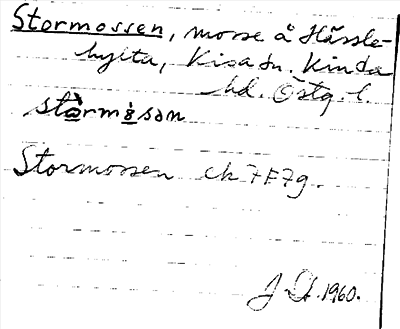 Stormossen, mosse å Hässle-
hylta, Kisa sn. Kinda
hd. Östg. l.
stòrmåsan
Stormossen ek 7F7g.
1960.